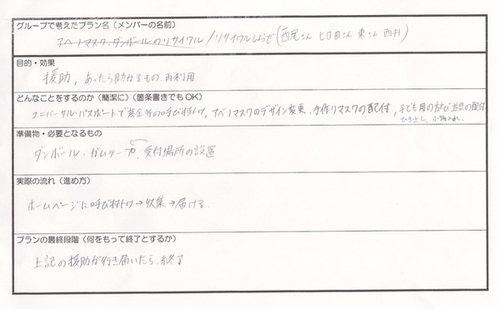 グループで考えたプラン名（メンバーの名前）
アベノマスク・ダンボールのリサイクル／リサイクルしようぜ（西尾さん 七日目さん 東さん 西村）
目的・効果
援助，あったら助かるもの，再利用
どんなことをするのか（簡潔に）（箇条書きでもOK）
ユニバーサル・パスポートで募金等の呼び掛け，アベノマスクのデザイン変更，手作りマスクの配付，子ども用の
準備物・必要となるもの
ダンボール・ガムテープ，受付場所の設置
実際の流れ（進め方）
ホームページに呼び掛け→収集→届ける
プランの最終段階（何をもって終了とするか）
上記の援助が行き届いたら，終了